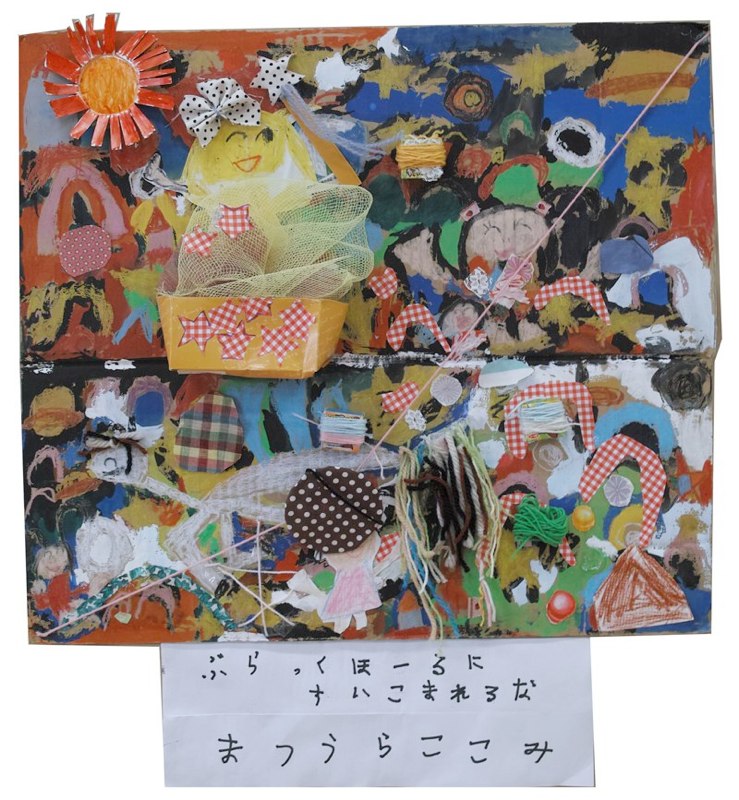 ぶらっくほーるに
すいこまれるな
まつうらここみ